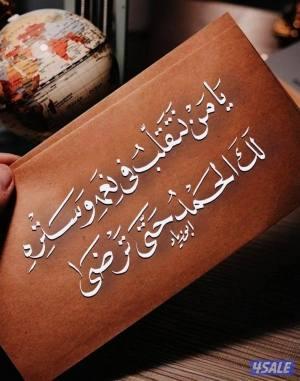 يَا مَنْ نَتَقَلَّبُ فِي نِعَمِهِ وَسَتْرِهِ
لَكَ الْحَمْدُ حَتَّى تَرْضَى
ابوزياد
4SALE